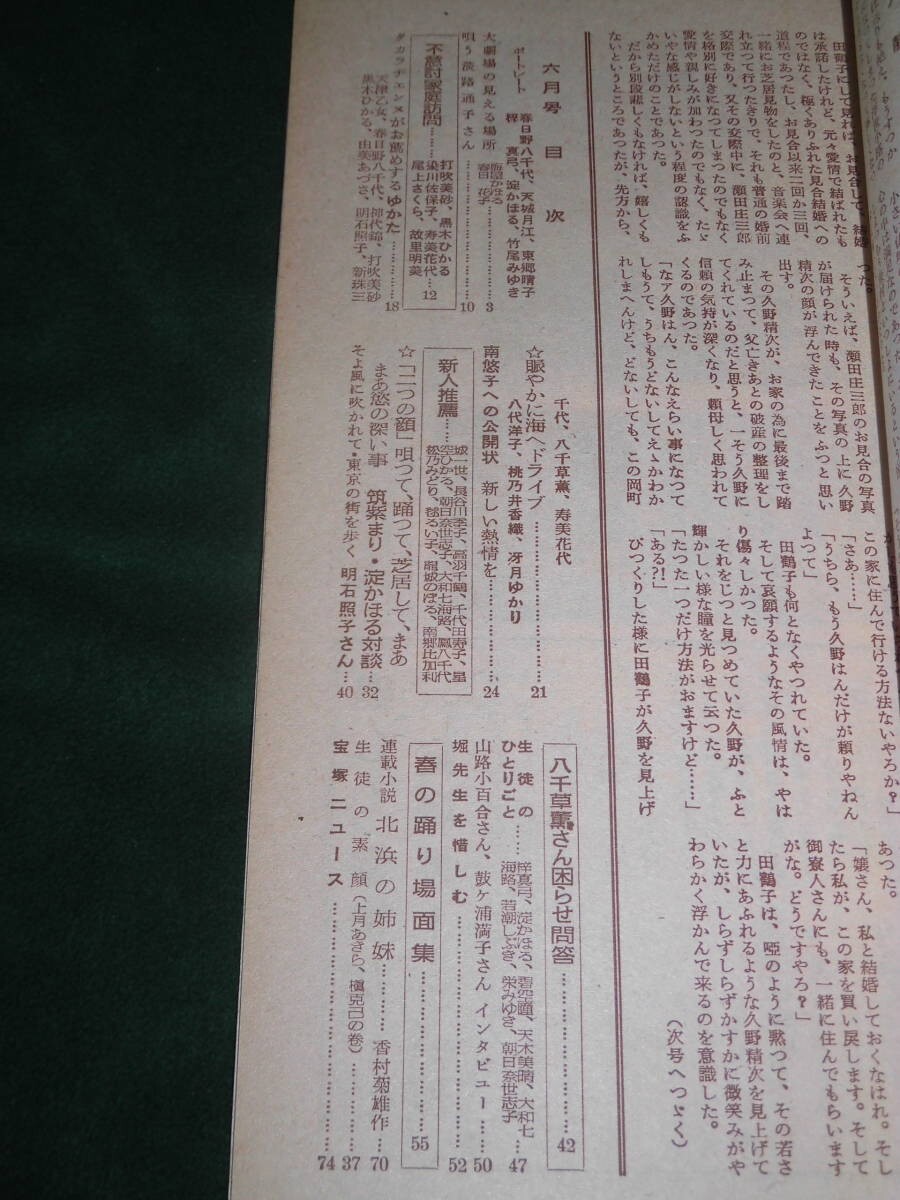 田鶴子にして見れば、お見合して、結婚
は承諾したけれど、元々愛情で結ばれたも
のではなく、極くありふれた見合結婚への
道程であつたし、お見合以来二回か三回、
一緒にお芝居見物をしたのと、音楽会へ連
れ立つて行つたきりで、それも普通の婚前
交際であり、又その交際中に、瀬田庄三郎
を格別に好きになつてしまつたのでもなく
愛情や親しみが加わつたのでもなく、たゞ
いやな感じがしないという程度の認識をふ
かめただけのことであつた。
だから別段悲しくもなければ、嬉しくも
ないというところであつたが、先方から、
つた。
そういえば、瀬田庄三郎のお見合の写真
が届けられた時も、その写真の上に久野
精次の顔が浮んできたことをふつと思い
出す。
その久野精次が、お家の為に最後まで踏
み止まつて、父亡きあとの破産の整理をし
てくれているのだと思うと、一そう久野に
信頼の気持が深くなり、頼母しく思われて
くるのであつた。
「なア久野はん、こんなえらい事になつて
しもうて、うちもうどないしてえゝかわか
れしまへんけど、どないしても、この岡町
この家に住んで行ける方法ないやろか？」
「さあ……」
「うちら、もう久野はんだけが頼りやねん
よつて」
田鶴子も何となくやつれていた。
そして哀願するようなその風情は、やは
り傷々しかつた。
それをじつと見つめていた久野が、ふと
輝かしい様な瞳を光らせて云つた。
「たつた一つだけ方法がおますけど……」
「ある？！」
びつくりした様に田鶴子が久野を見上げ
あつた。
「嬢さん、私と結婚しておくなはれ。そし
たら私が、この家を買い戻します。そして
御寮人さんにも、一緒に住んでもらいます
がな。どうですやろ？」
田鶴子は、啞のように黙つて、その若さ
と力にあふれるような久野精次を見上げて
いたが、しらずしらずかすかに微笑みがや
わらかく浮かんで来るのを意識した。
（次号へつゞく）
六月号 目次
ポートレート 春日野八千代、天城月江、東郷晴子
梓 真弓、淀かほる、竹尾みゆき
大劇場の見える場所 春日 花子……3
唄う淡路通子さん……10
不意討家庭訪問…… 打吹美砂、黒木ひかる
染川佐保子、寿美花代
尾上さくら、故里明美……12
タカラヂエンヌがお薦めするゆかた……18
天津乙女、春日野八千代、神代錦、打吹美砂
黒木ひかる、由美あづさ、明石照子、新珠三
千代、八千草薫、寿美花代
☆賑やかに海へドライブ……21
八代洋子、桃乃井香織、冴月ゆかり
南悠子への公開状 新しい熱情を……24
新人推薦…… 城一世、長谷川季子、高羽千鶴、千代田寿子、星
空ひかる、朝日奈世志子、大和七海路、鳳八千代
松乃みどり、毬るい子、龍城のぼる、南郷比加利
☆「二つの顔」唄つて、踊つて、芝居して、まあ
まあ慾の深い事 筑紫まり・淀かほる対談……32
そよ風に吹かれて・東京の街を歩く 明石照子さん……40
八千草薫さん困らせ問答……42
生徒の
ひとりごと…… 梓真弓、淀かほる、碧空顕、天木美晴、大和七
海路、若潮しぶき、栄みゆき、朝日奈世志子……47
山路小百合さん、鼓ケ浦満子さん インタビユー……50
堀先生を惜しむ……52
春の踊り場面集……55
連載小説 北浜の姉妹…… 香村菊雄作……70
生徒の素顔（上月あきら、槇克己の巻）……37
宝塚ニュース……74